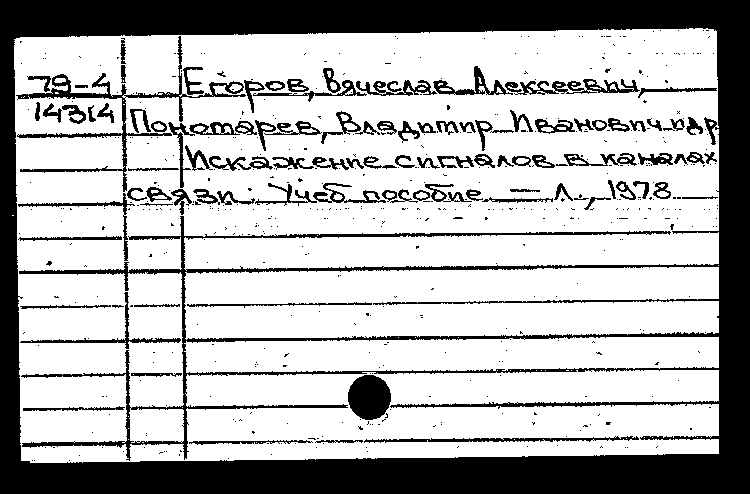 79-4 Егоров, Вячеслав Алексеевич,
14314 Пономарев, Владимир Иванович и др
Искажение сигналов в каналах
связи. Учеб пособие. — Л., 1978